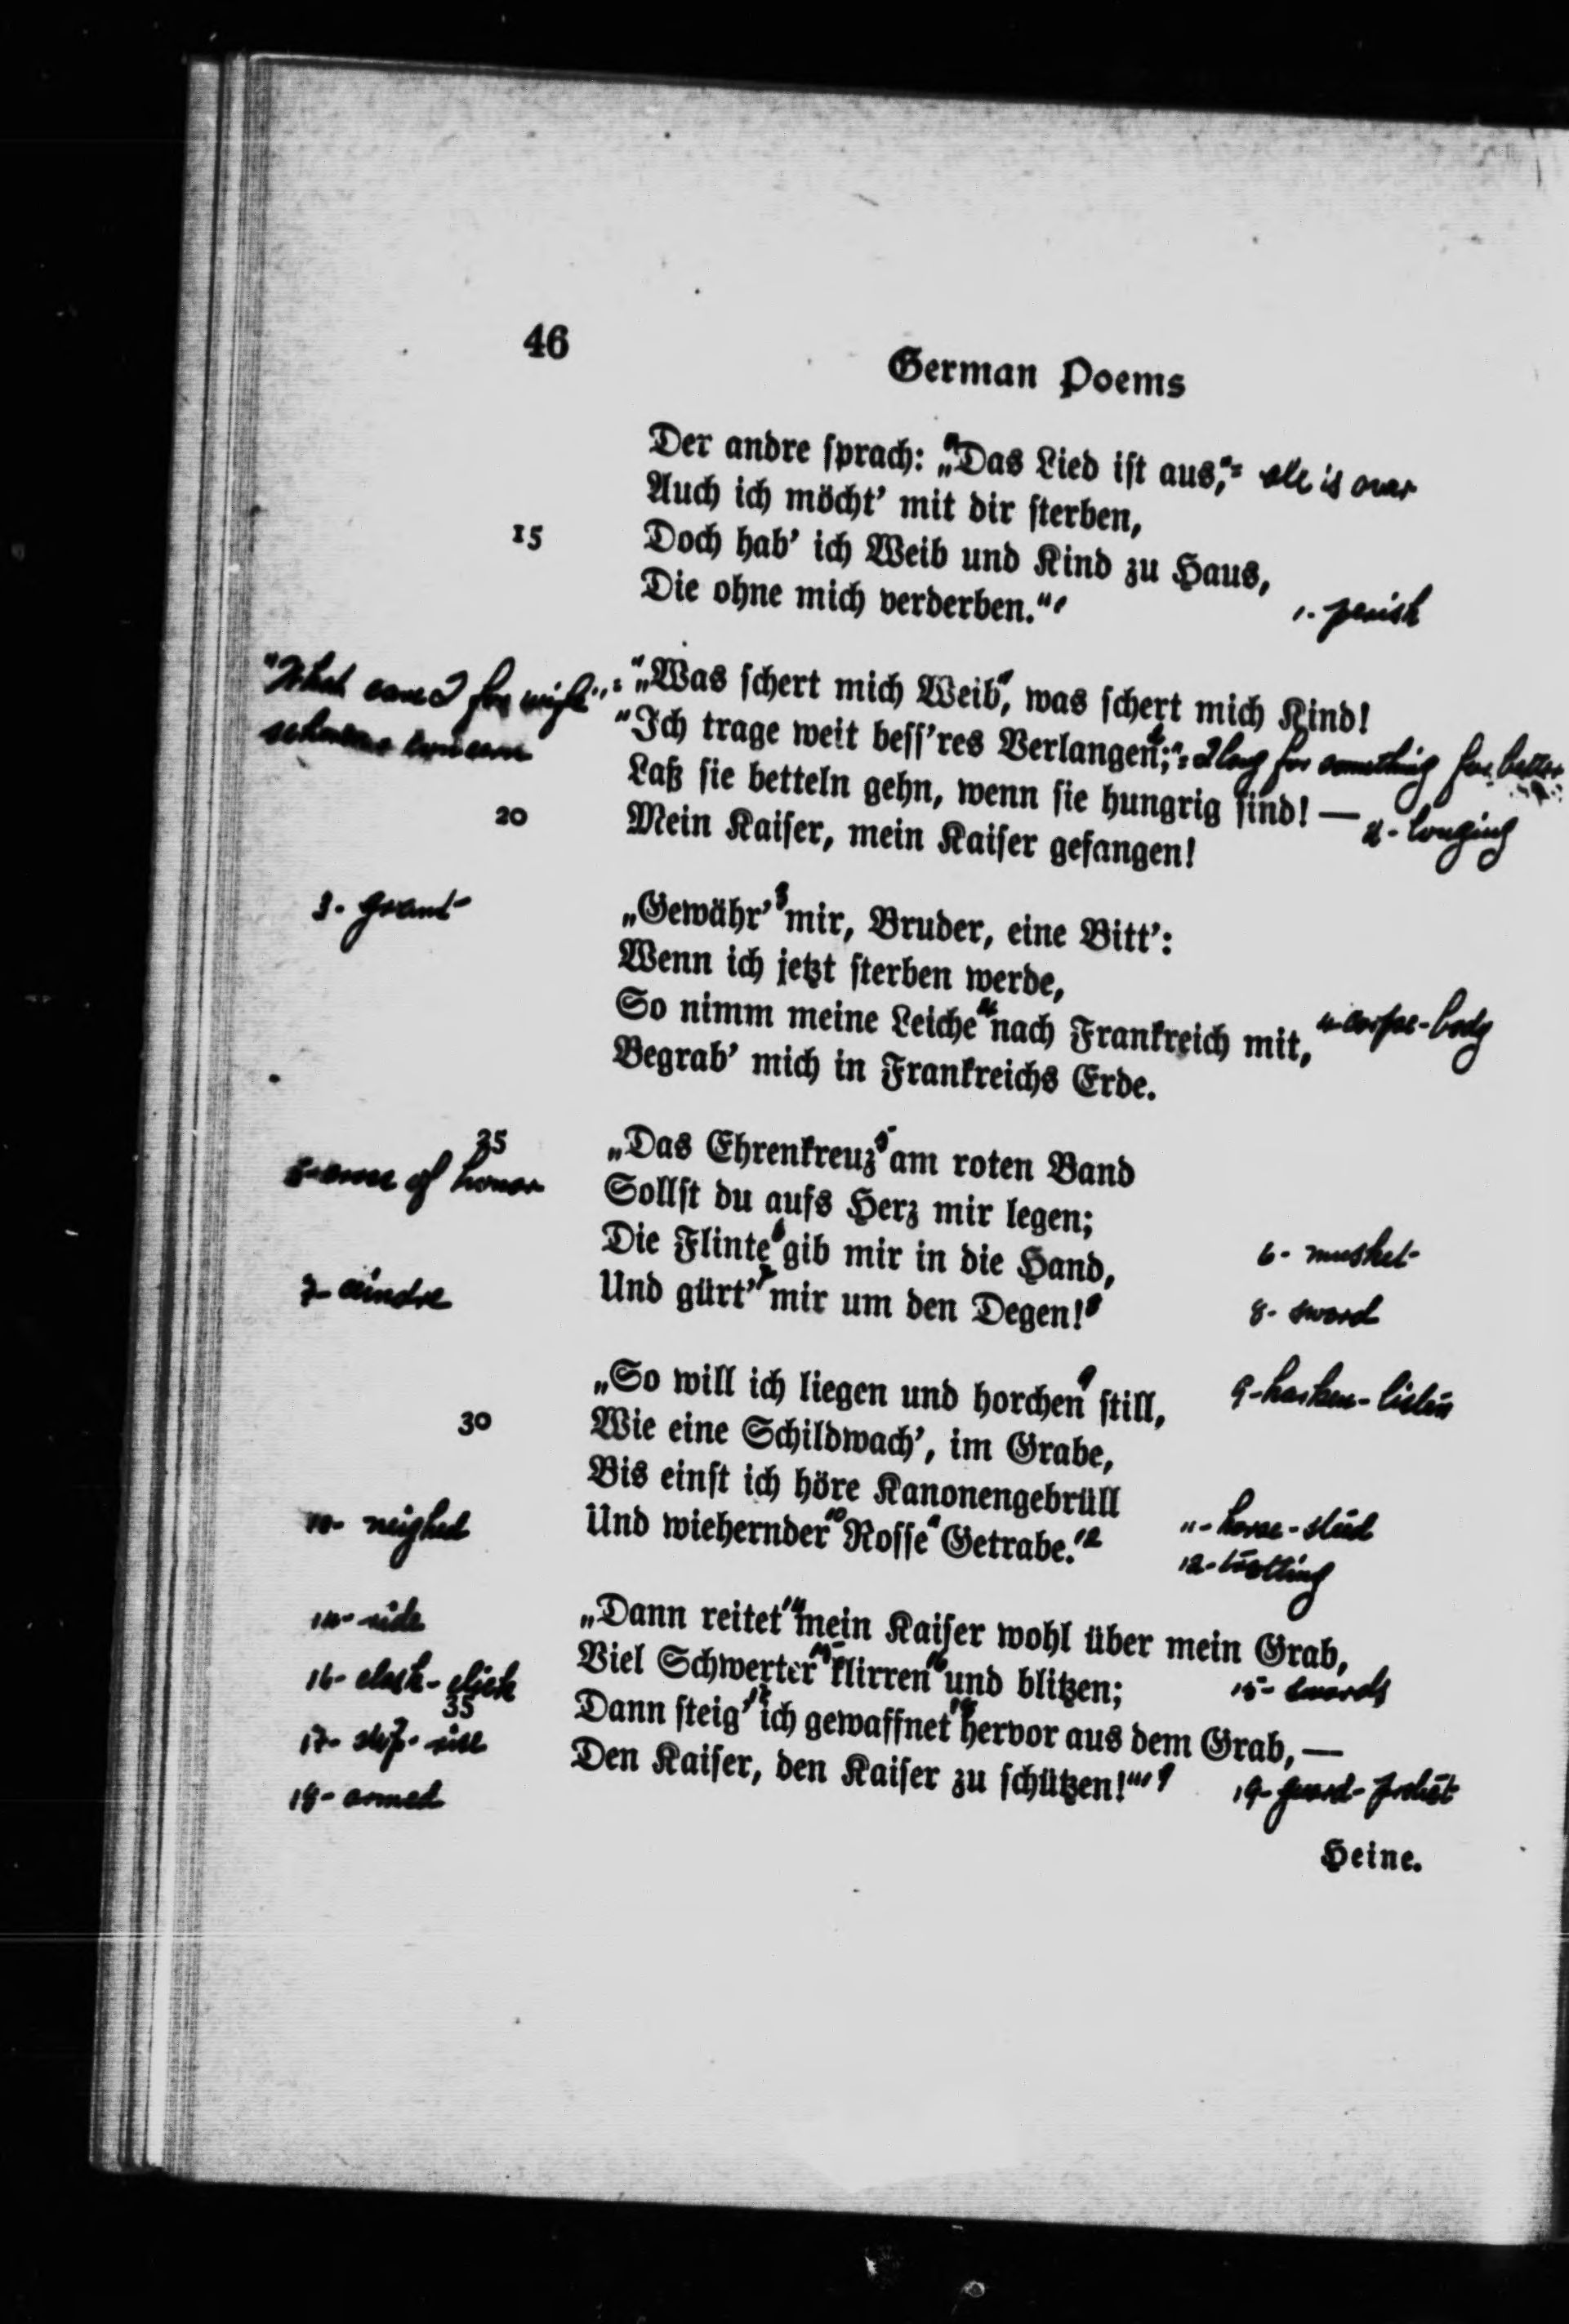 46
German Poems
Der andre sprach: „Das Lied ist aus, = all is over
Auch ich möcht' mit dir sterben,
15 Doch hab' ich Weib und Kind zu Haus,
Die ohne mich verderben.“ 1
1. perish
"What care I for wife" = „Was schert mich Weib, was schert mich Kind!
"Ich trage weit bess'res Verlangen;" 2 = I long for something far better
concern
Laß sie betteln gehn, wenn sie hungrig sind! —
2- longing
20 Mein Kaiser, mein Kaiser gefangen!
3- grant
„Gewähr' 3 mir, Bruder, eine Bitt':
Wenn ich jetzt sterben werde,
So nimm meine Leiche 4 nach Frankreich mit,
4-corpse-body
Begrab' mich in Frankreichs Erde.
25 „Das Ehrenkreuz 5 am roten Band
5-cross of honor
Sollst du aufs Herz mir legen;
Die Flinte 6 gib mir in die Hand,
6- musket
7-
Und gürt' 7 mir um den Degen! 8
8- sword
„So will ich liegen und horchen 9 still,
9-harken-listen
30 Wie eine Schildwach', im Grabe,
Bis einst ich höre Kanonengebrüll
10- neighed
Und wiehernder 10 Rosse 11 Getrabe. 12
11- horse-steed
12-trotting
14- ride
„Dann reitet 14 mein Kaiser wohl über mein Grab,
Viel Schwerter 15 klirren 16 und blitzen;
15- swords
16- clash-
35 Dann steig' 17 ich gewaffnet 18 hervor aus dem Grab, —
17- step-rise
Den Kaiser, den Kaiser zu schützen!“ 19
18- armed
19- guard-protect
Heine.